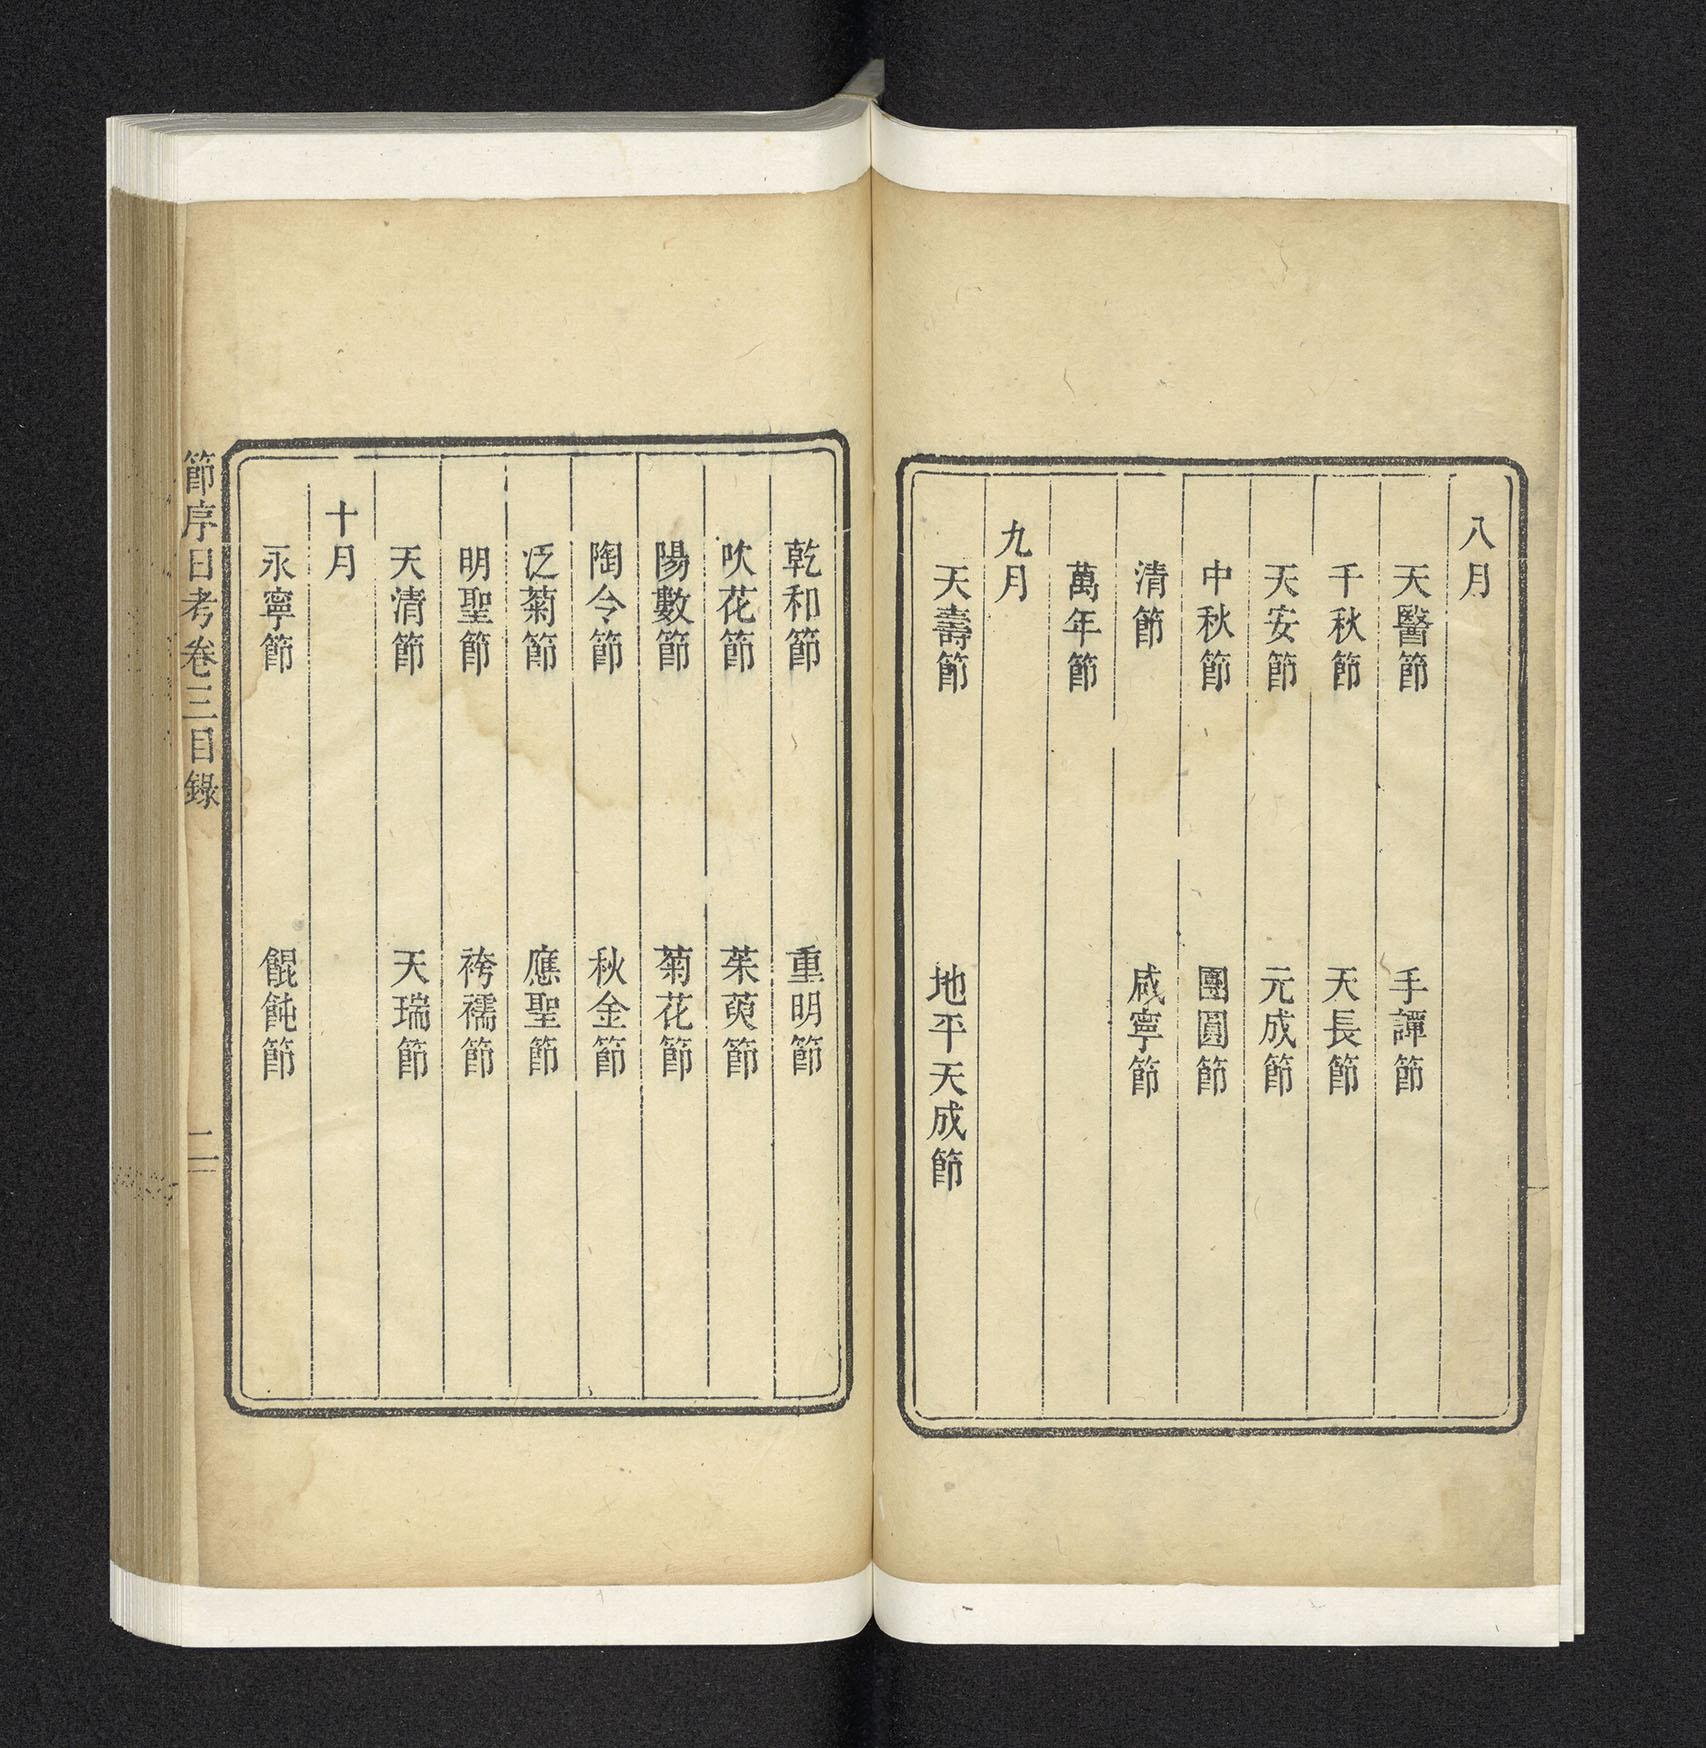 八月
天醫節　手譚節
千秋節　天長節
天安節　元成節
中秋節　團圓節
清節　咸寧節
萬年節
九月
天壽節　地平天成節
乾和節　重明節
吹花節　茱萸節
陽數節　菊花節
陶令節　秋金節
泛菊節　應聖節
明聖節　袴襦節
天清節　天瑞節
十月
永寧節　餛飩節
節序日考卷三目錄　二